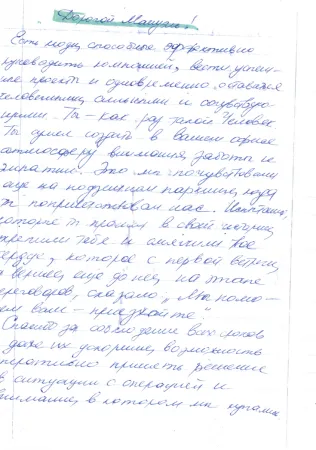 Дорогой Манучар!
Есть люди, способные эффективно
руководить компанией, вести успеш-
ные проекты и одновременно оставаться
человечными, сильными и сочувствую-
щими. Ты – как раз такой Человек.
Ты сумел создать в вашем офисе
атмосферу внимания, заботы и
эмпатии. Это мы почувствовали
еще на подземном паркинге, когда
ты поприветствовал нас. Испытания,
которые ты прошел в своей жизни,
укрепили тебя и смягчили твое
сердце, которое с первой встречи,
а вернее, еще до нее, на этапе
переговоров, сказало „Мы помо-
жем вам – приезжайте".
Спасибо за соблюдение всех сроков
и даже их ускорение, возможность
оперативно принять решение
в ситуации с операцией и
внимание, в котором мы купались